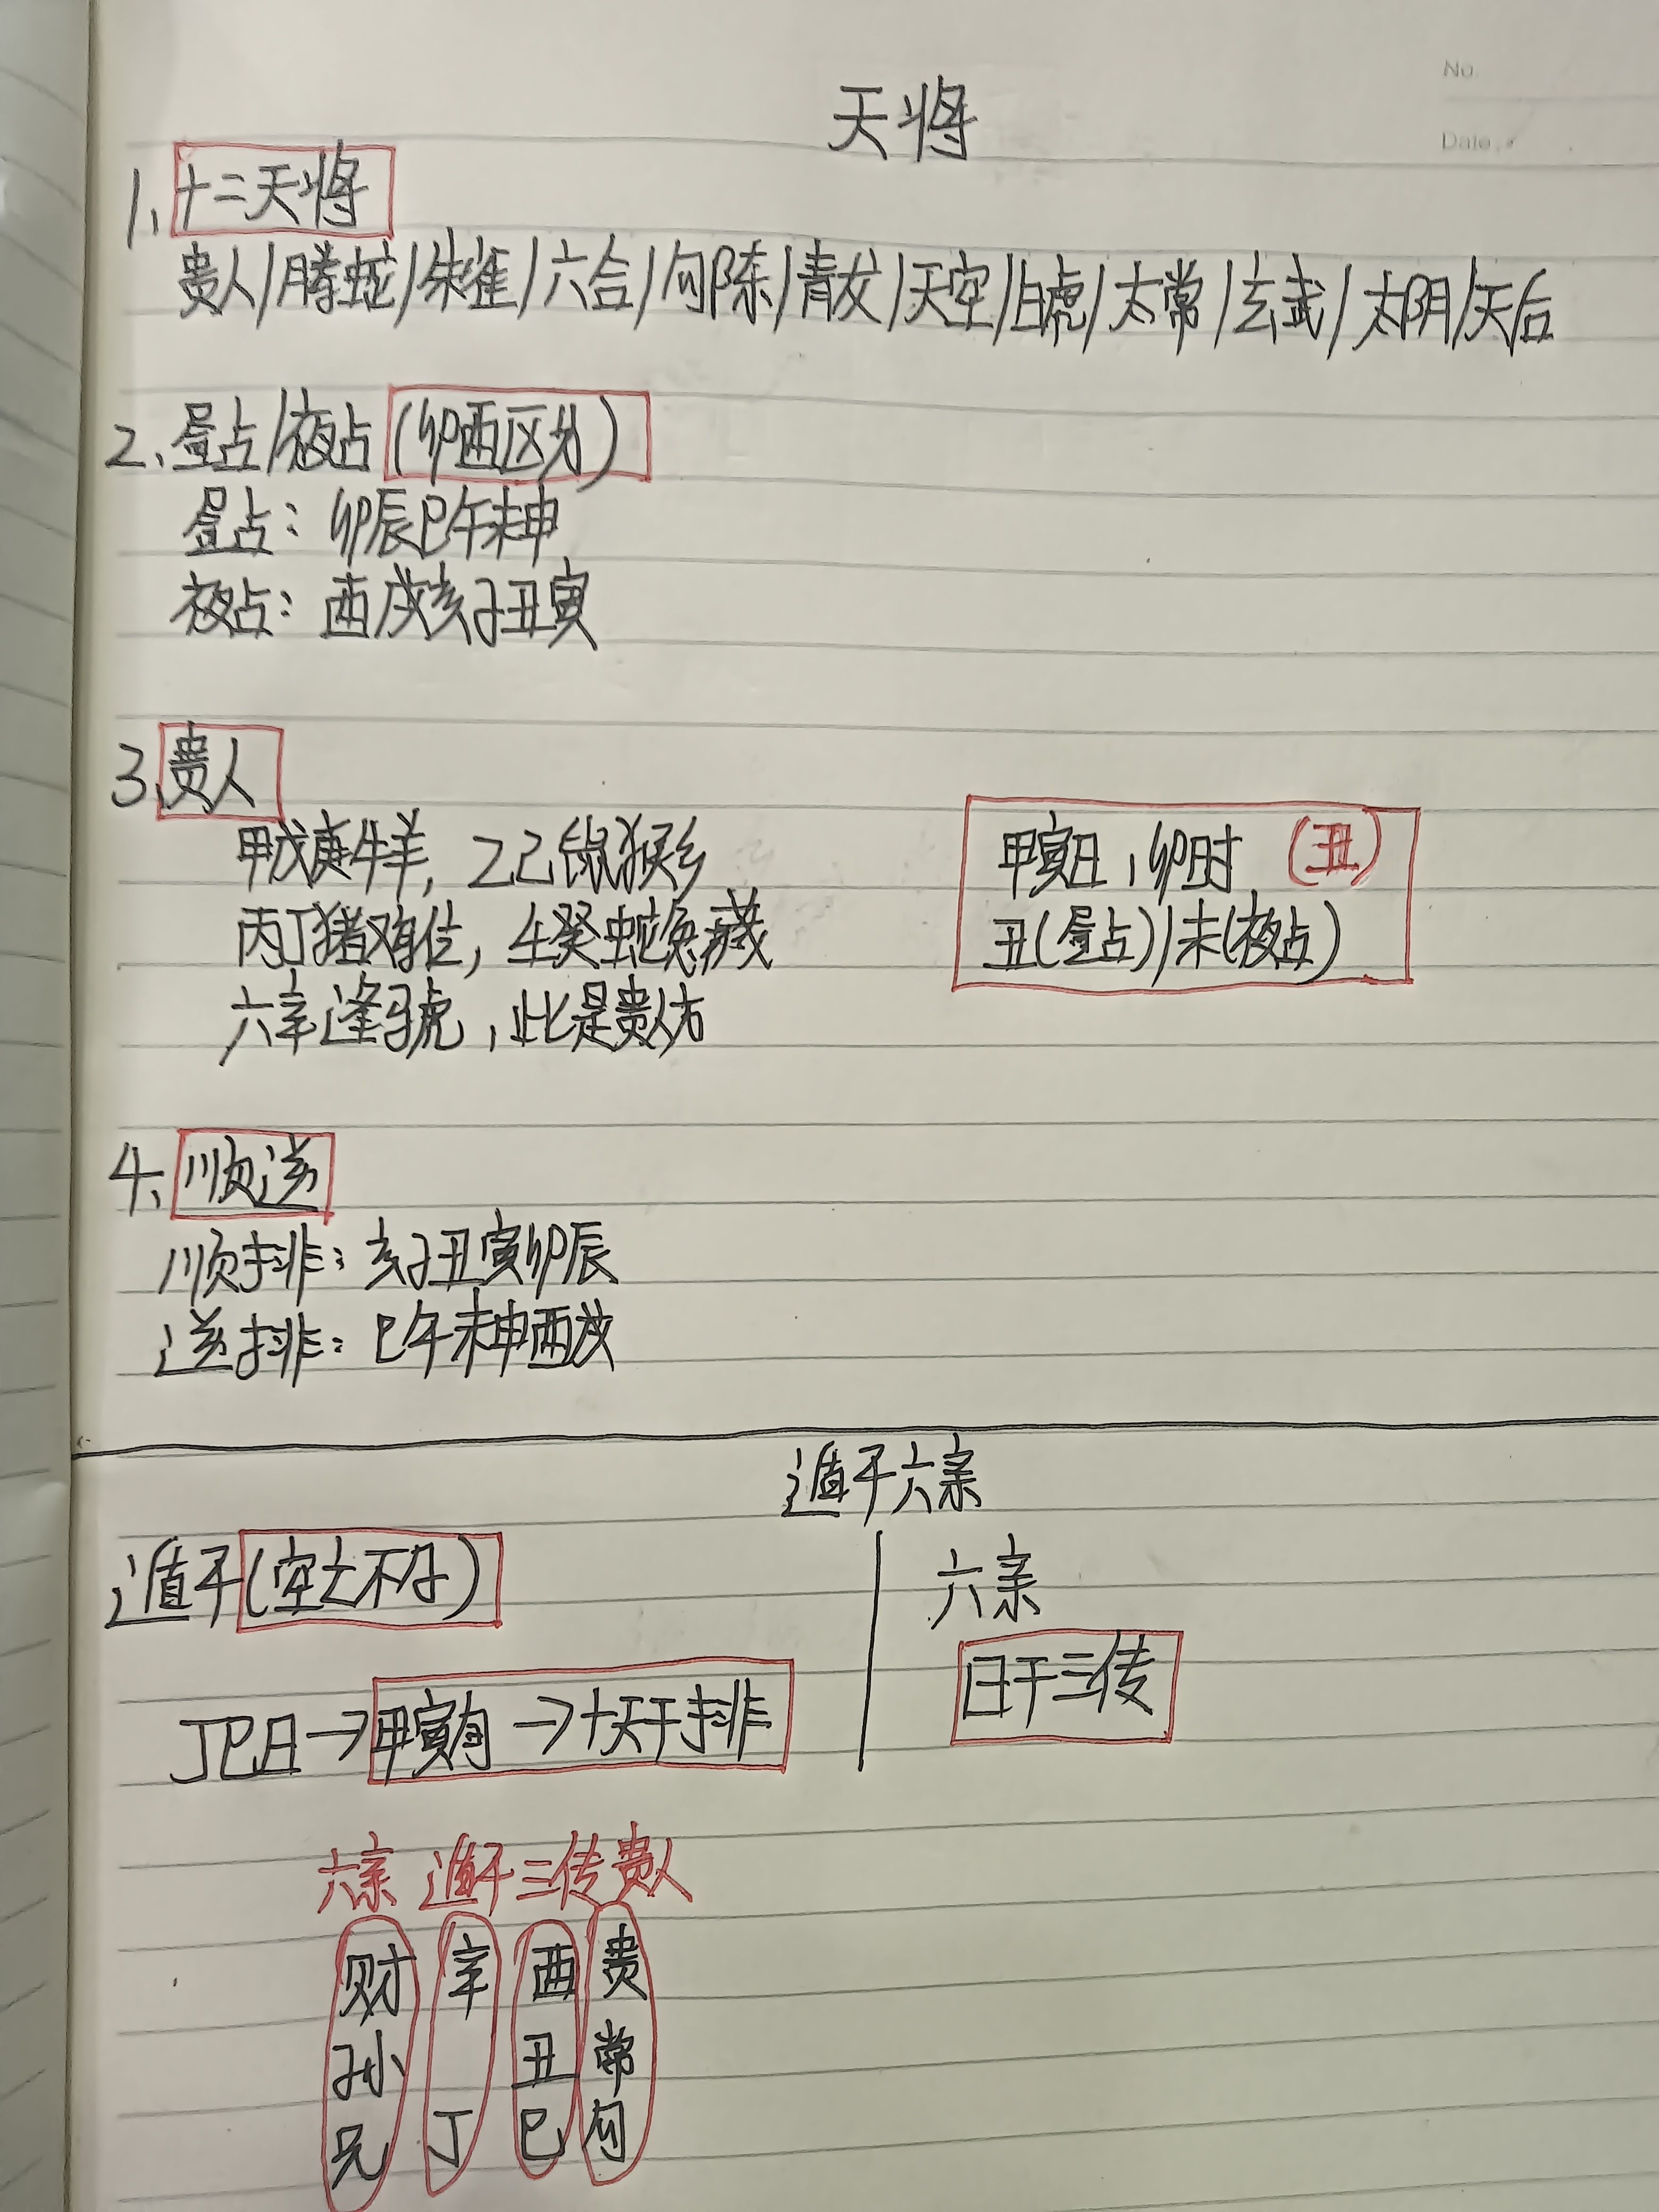 No.
Date.
天将
1、十二天将
贵人/腾蛇/朱雀/六合/勾陈/青龙/天空/白虎/太常/玄武/太阴/天后
2、昼占/夜占(卯酉区分)
昼占：卯辰巳午未申
夜占：酉戌亥子丑寅
3、贵人
甲戊庚牛羊，乙己鼠猴乡
丙丁猪鸡位，壬癸蛇兔藏
六辛逢马虎，此是贵人方
甲寅日，卯时 (丑)
丑(昼占)/未(夜占)
4、顺逆
顺排：亥子丑寅卯辰
逆排：巳午未申酉戌
遁干六亲
遁干(空亡不排)
丁巳日→甲寅旬→十天干排
六亲
日干三传
六亲 遁干三传贵人
财 辛 酉 贵
孙 丑 常
兄 丁 巳 勾